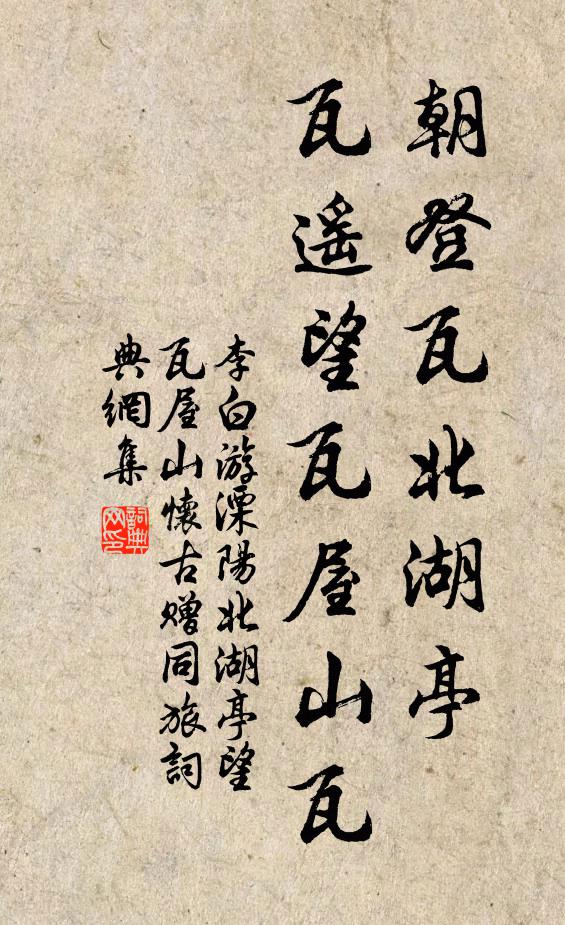 朝登瓦北湖亭
瓦遥望瓦屋山瓦
李白游溧陽北湖亭望
瓦屋山懷古贈同旅詞
典網集
詞典
网印